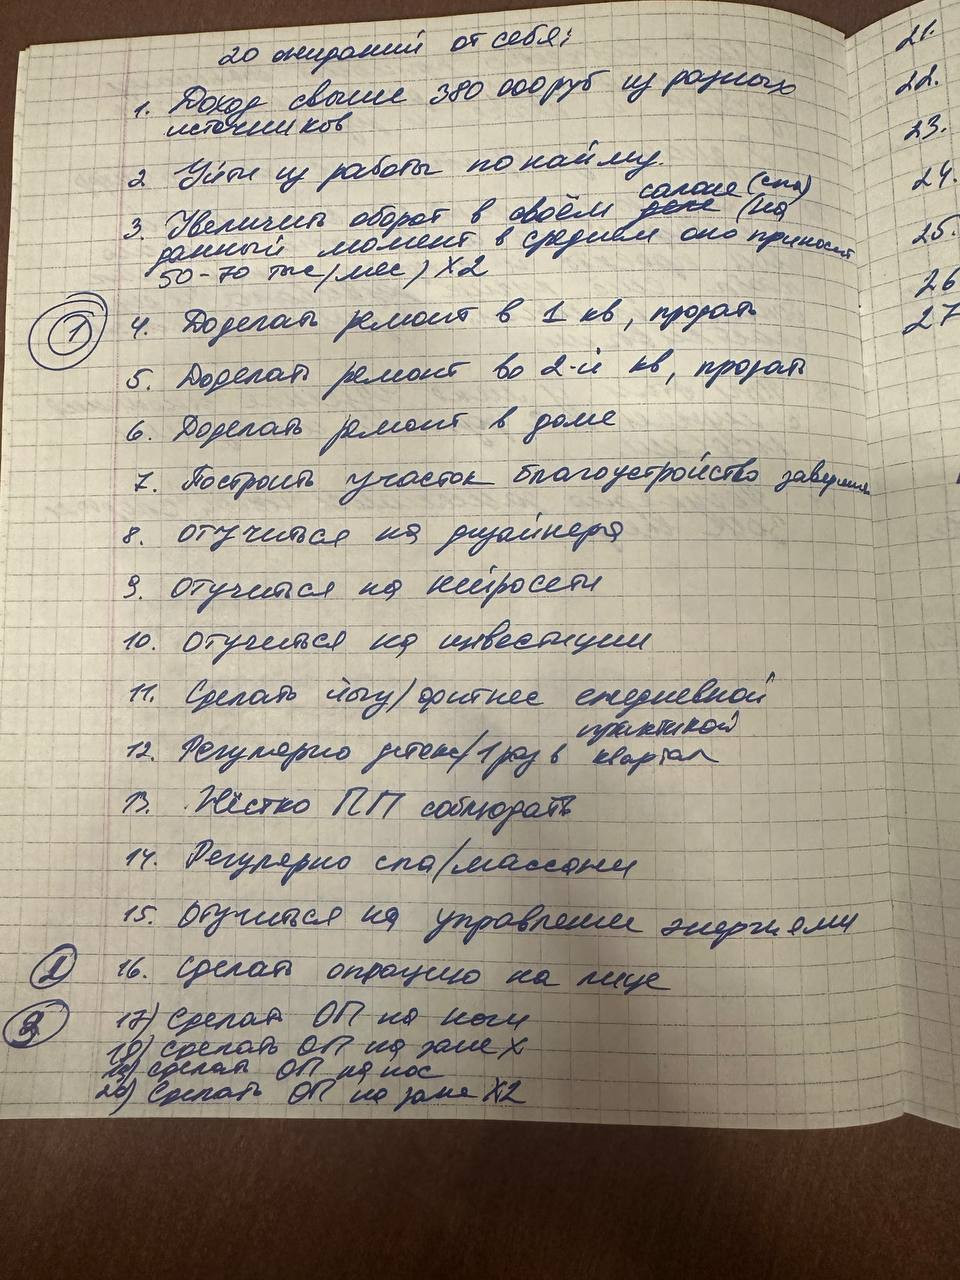 20 ожиданий от себя:
1. Доход свыше 380 000 руб из разных
источников
2 Уйти из работы по найму.
салоне (спа)
3. Увеличить оборот в своём деле (на
данный момент в среднем оно приносит
50-70 тыс/мес) Х2
1 4. Доделать ремонт в 1 кв, продать
5. Доделать ремонт во 2-й кв, продать
6. Доделать ремонт в доме
7. Построить участок благоустройство
8. Отучиться на дизайнера
9. Отучиться на нейросети
10. Отучиться на инвестиции
11. Сделать йогу/фитнес ежедневной
практикой
12. Регулярно детокс/1 раз в квартал
13. Жёстко ПП соблюдать
14. Регулярно спа/массажи
15. Отучиться на управление энергиями
16. Сделать операцию на лице
17) Сделать ОП на ноги
18) Сделать ОП на
19) Сделать ОП на нос
20) Сделать ОП на Х2
21.
22.
23.
24.
25.
26
27